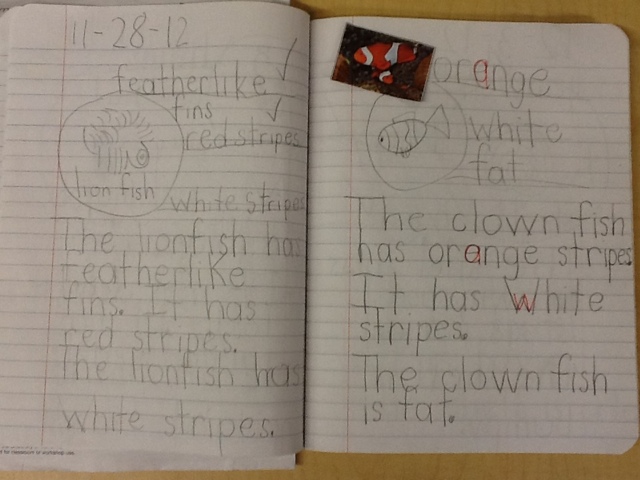 11-28-12
featherlike
fins
red stripes
lion fish
white stripes
The lionfish has
featherlike
fins. It has
red stripes.
The lionfish has
white stripes.
orange
white
fat
The clown fish
has orange stripes
It has white
stripes.
The clown fish
is fat.